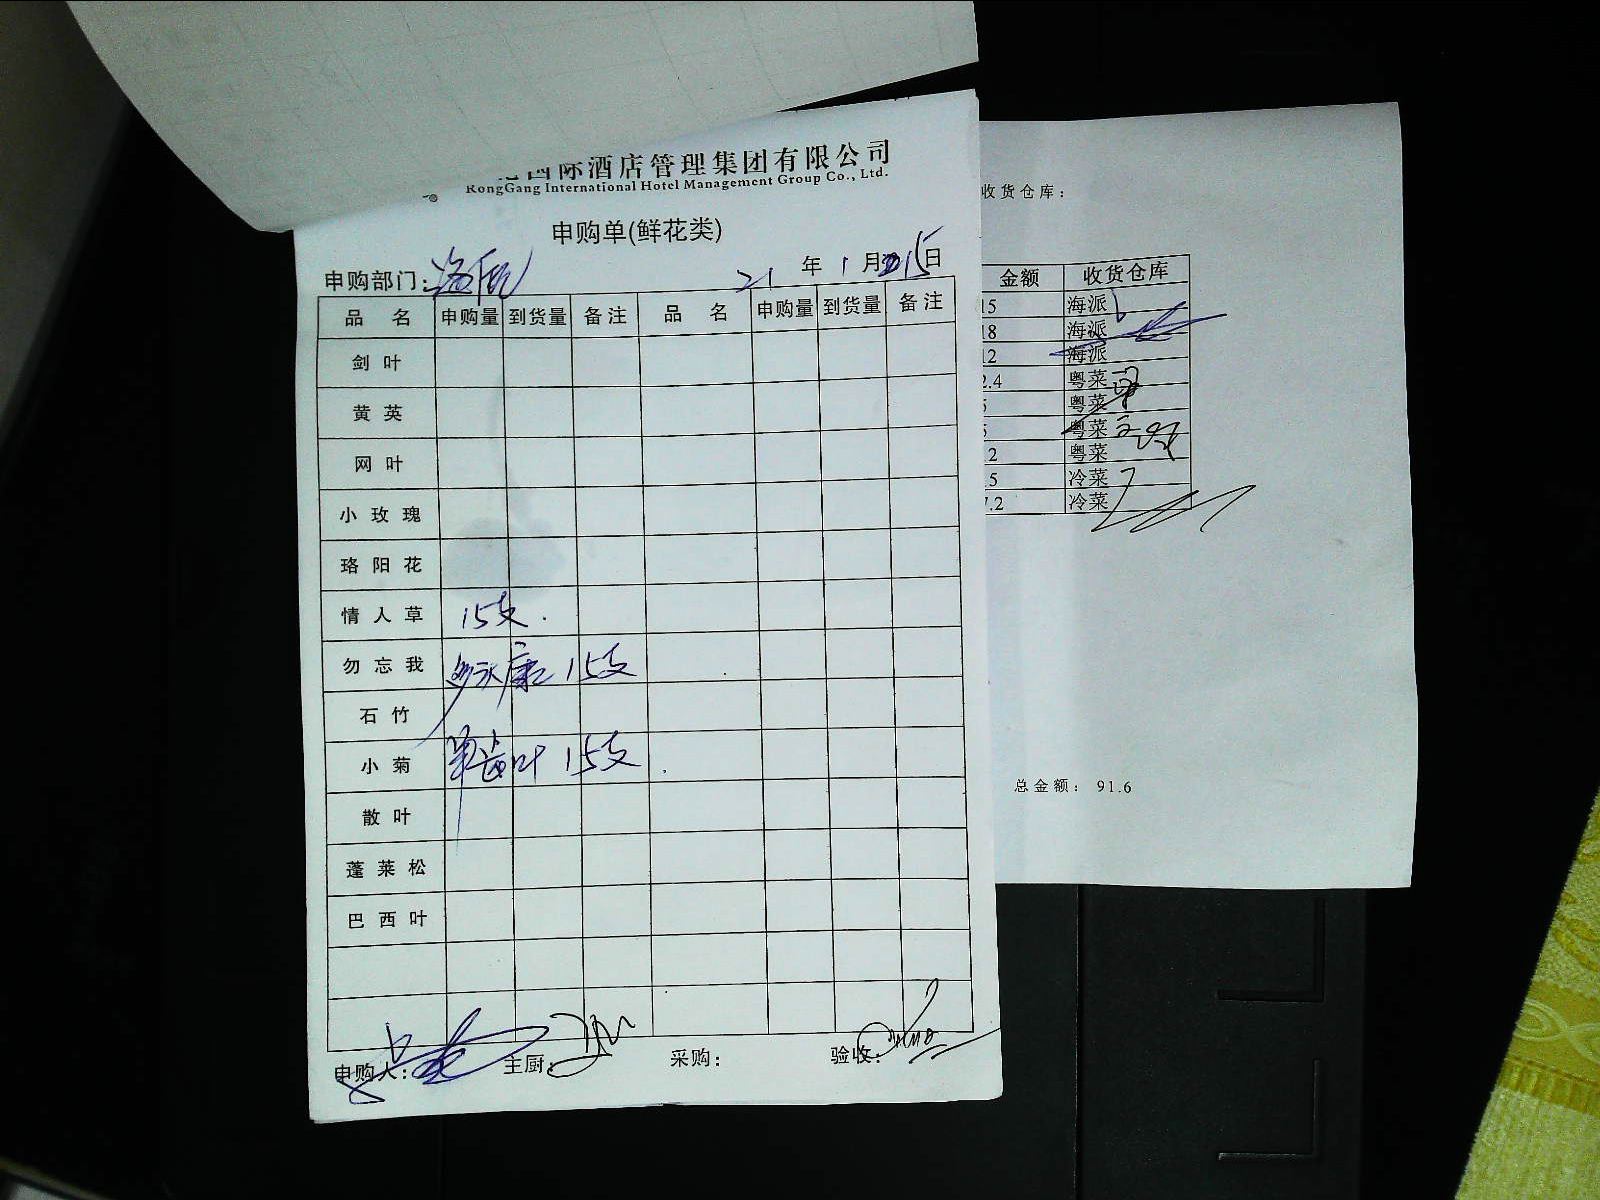 国际酒店管理集团有限公司
RongGang International Hotel Management Group Co., Ltd.
申购单(鲜花类)
申购部门: 海派 21 年 1 月 15 日
品 名 申购量 到货量 备注 品 名 申购量 到货量 备注
剑叶
黄英
网叶
小玫瑰
珞阳花
情人草 15支.
勿忘我 康 15支
石竹
小菊 叶 15支
散叶
蓬莱松
巴西叶
申购人: 主厨: 采购: 验收:
收货仓库:
金额 收货仓库
15 海派
18 海派
12 海派
2.4 粤菜
5 粤菜
5 粤菜
2 粤菜
.5 冷菜
7.2 冷菜
总金额: 91.6